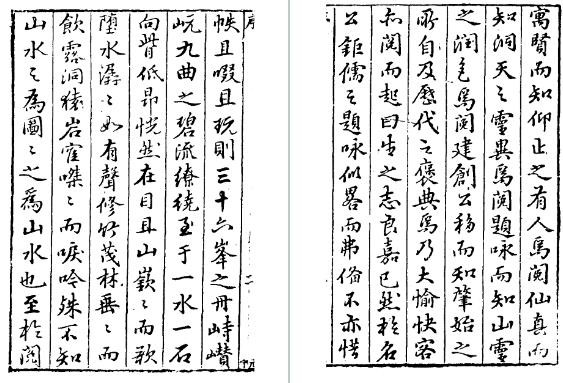 寓賢而知仰止之有人焉閱仙真而
知洞天之靈異焉閱題咏而知山靈
之潤色焉閱建創公移而知肇始之
所自及歷代之褒典焉乃大愉快客
閱而起曰生之志良嘉已然於名
公鉅儒之題咏似畧而弗備不亦惜
序
二
帙且啜且玩則三十六峯之丹峙巑
岏九曲之碧流繚繞至于一水一石
向背低昂恍然在目且山嶽々而欲
墮水潺々如有聲修竹茂林垂々而
飲露洞猿岩隺嗥々而唳吟殊不知
山水之為圖々之為山水也至於閱